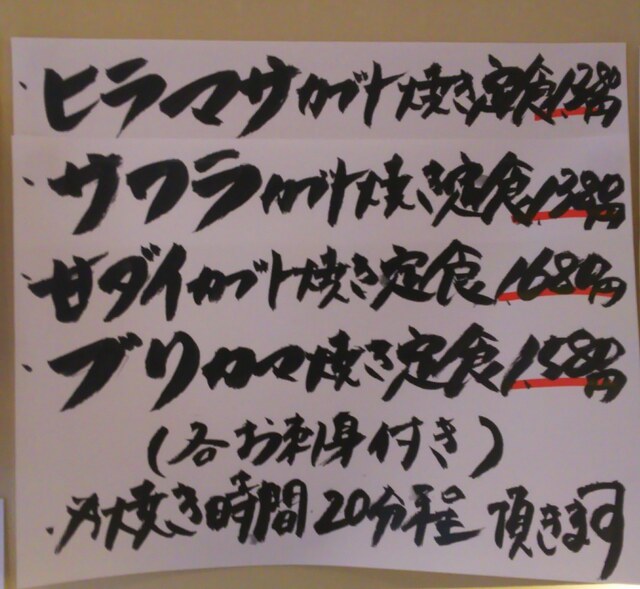 、ヒラマサカブト焼き定食1380円
、サワラカブト焼き定食1380円
、甘ダイカブト焼き定食1680円
、ブリカマ焼き定食1580円
(各お刺身付き)
焼き時間20分程頂きます